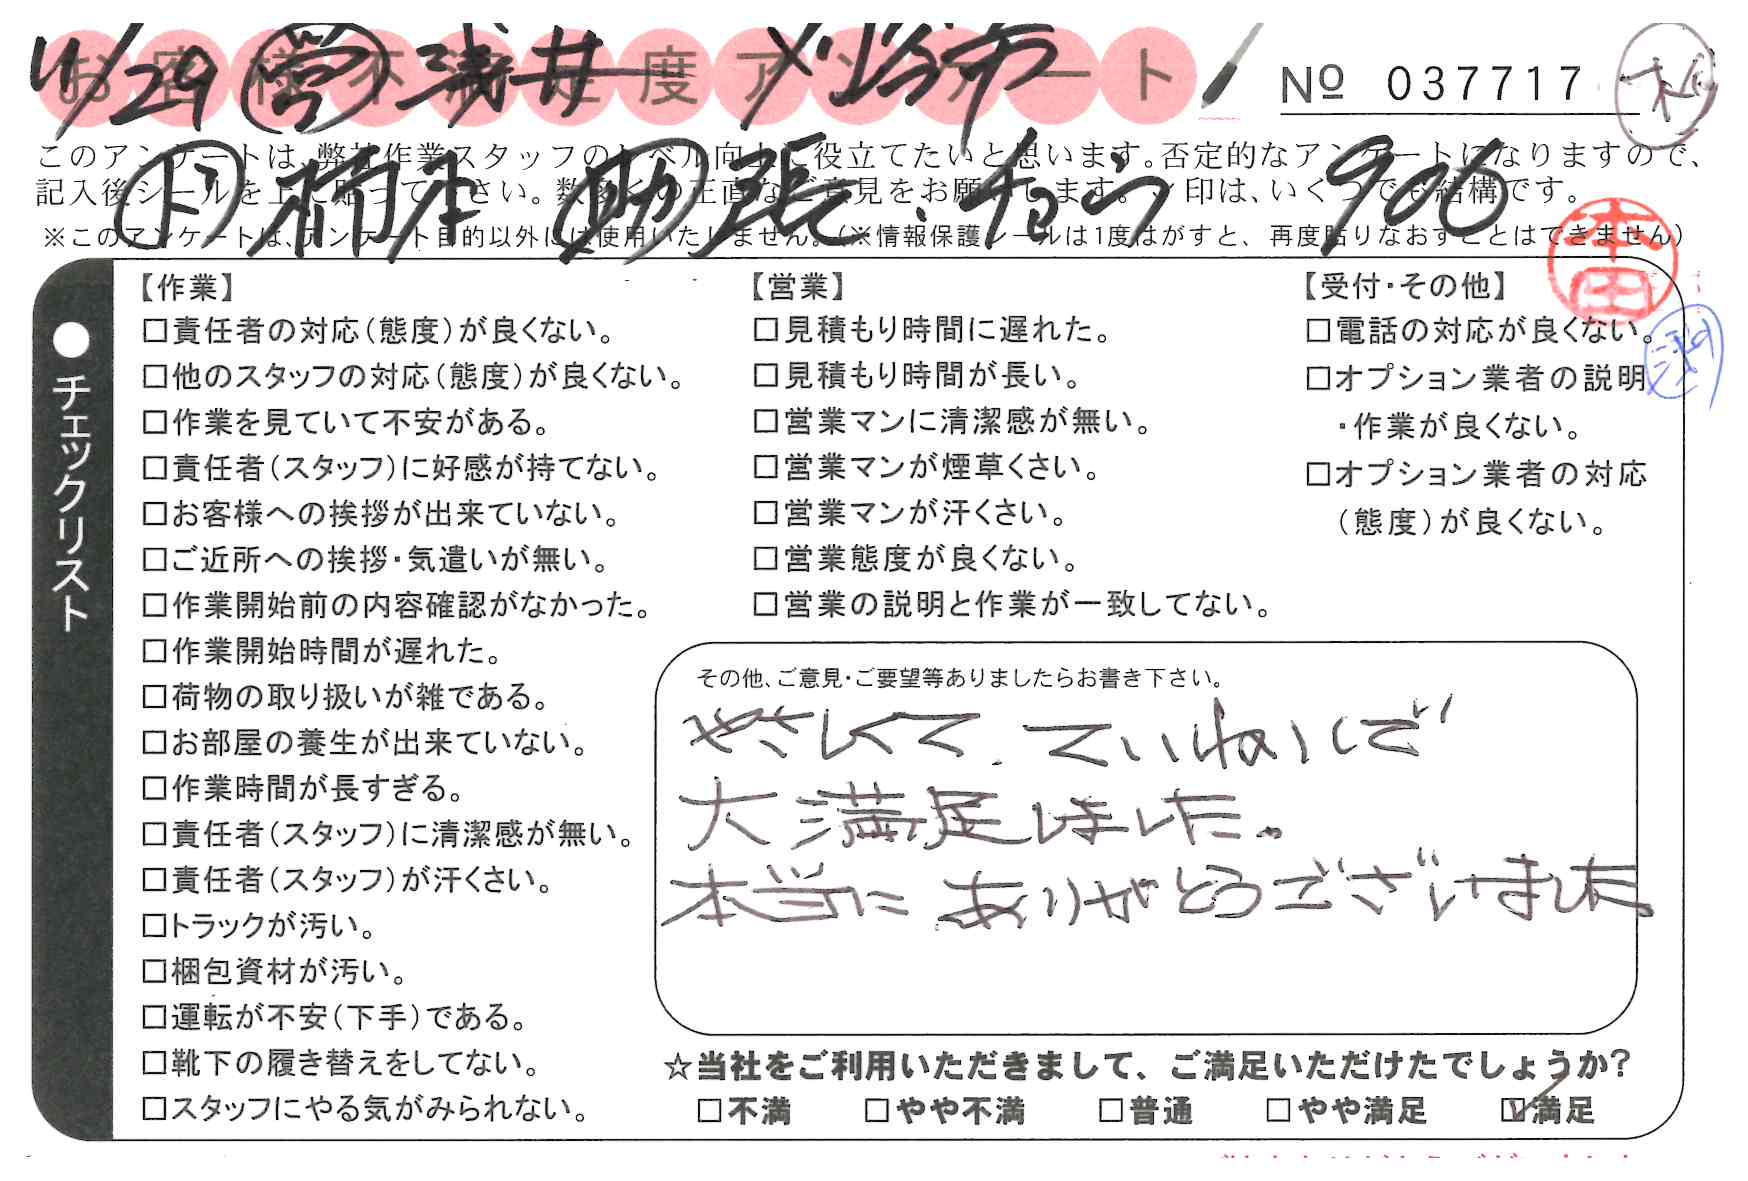 お客様不満足度アンケート
4/29 ㊂ 浅井
№ 037717
このアンケートは、弊社作業スタッフのレベル向上に役立てたいと思います。否定的なアンケートになりますので、
記入後シールを上に貼って下さい。数多くの正直なご意見をお願いします。レ印は、いくつでも結構です。
橋本 助 張、 906
※このアンケートは、アンケート目的以外には使用いたしません。（※情報保護シールは1度はがすと、再度貼りなおすことはできません）
本田
チェックリスト
【作業】
□責任者の対応（態度）が良くない。
□他のスタッフの対応（態度）が良くない。
□作業を見ていて不安がある。
□責任者（スタッフ）に好感が持てない。
□お客様への挨拶が出来ていない。
□ご近所への挨拶・気遣いが無い。
□作業開始前の内容確認がなかった。
□作業開始時間が遅れた。
□荷物の取り扱いが雑である。
□お部屋の養生が出来ていない。
□作業時間が長すぎる。
□責任者（スタッフ）に清潔感が無い。
□責任者（スタッフ）が汗くさい。
□トラックが汚い。
□梱包資材が汚い。
□運転が不安（下手）である。
□靴下の履き替えをしてない。
□スタッフにやる気がみられない。
【営業】
□見積もり時間に遅れた。
□見積もり時間が長い。
□営業マンに清潔感が無い。
□営業マンが煙草くさい。
□営業マンが汗くさい。
□営業態度が良くない。
□営業の説明と作業が一致してない。
【受付・その他】
□電話の対応が良くない。
□オプション業者の説明
・作業が良くない。
□オプション業者の対応
（態度）が良くない。
その他、ご意見・ご要望等ありましたらお書き下さい。
やさしくて、ていねいで
大満足しました。
本当にありがとうございました。
☆当社をご利用いただきまして、ご満足いただけたでしょうか?
□不満 □やや不満 □普通 □やや満足 ☑満足